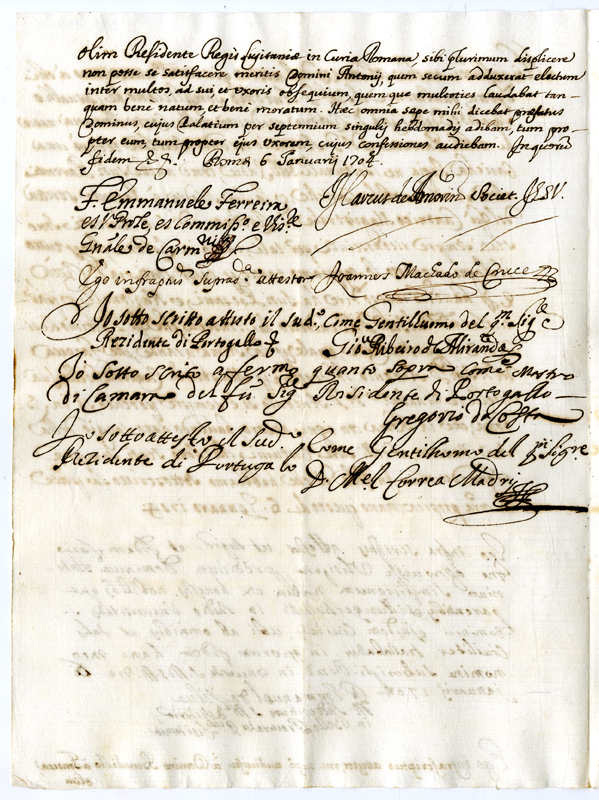 olim Residente Regis Lusitaniæ in Curia Romana, sibi plurimum displicere
non posse se satisfacere meritis Domini Antonij, quem secum adduxerat electum
inter multos, ad sui et uxoris obsequium, quem que multoties laudabat tan-
quam bene natum, et bene moratum. Hæc omnia sæpe mihi dicebat præfatus
Dominus, cujus Palatium per septemnium singulis hebdomadis adibam, tum pro-
pter eum, tum propter ejus uxorem, cujus confessiones audiebam. In quorum
fidem Romæ 6 Januarij 1704.
F. Emmanuele Ferreira
ex Commiss.o e
Gnãles de Carm
Marcus de Amorin Societ. JESV.
Ego infraptus suprad.a attestor Joannes Machado de Cruce
Io sotto scritto attesto il sud.o, come Gentilluomo del q.m Sig.e
Rezidente di Portogallo
Gio: Ribeiro de Miranda
Io sotto scrito affermo quanto sopra come Mastro
di Camara del fù Sig.re Residente di Portogallo
Gregorio da Costa
Io sottoattesto il sud.o Come Gentilhomo del q.m Sig.re
Rezidente di Portugalo
D. Mel Correa Madry